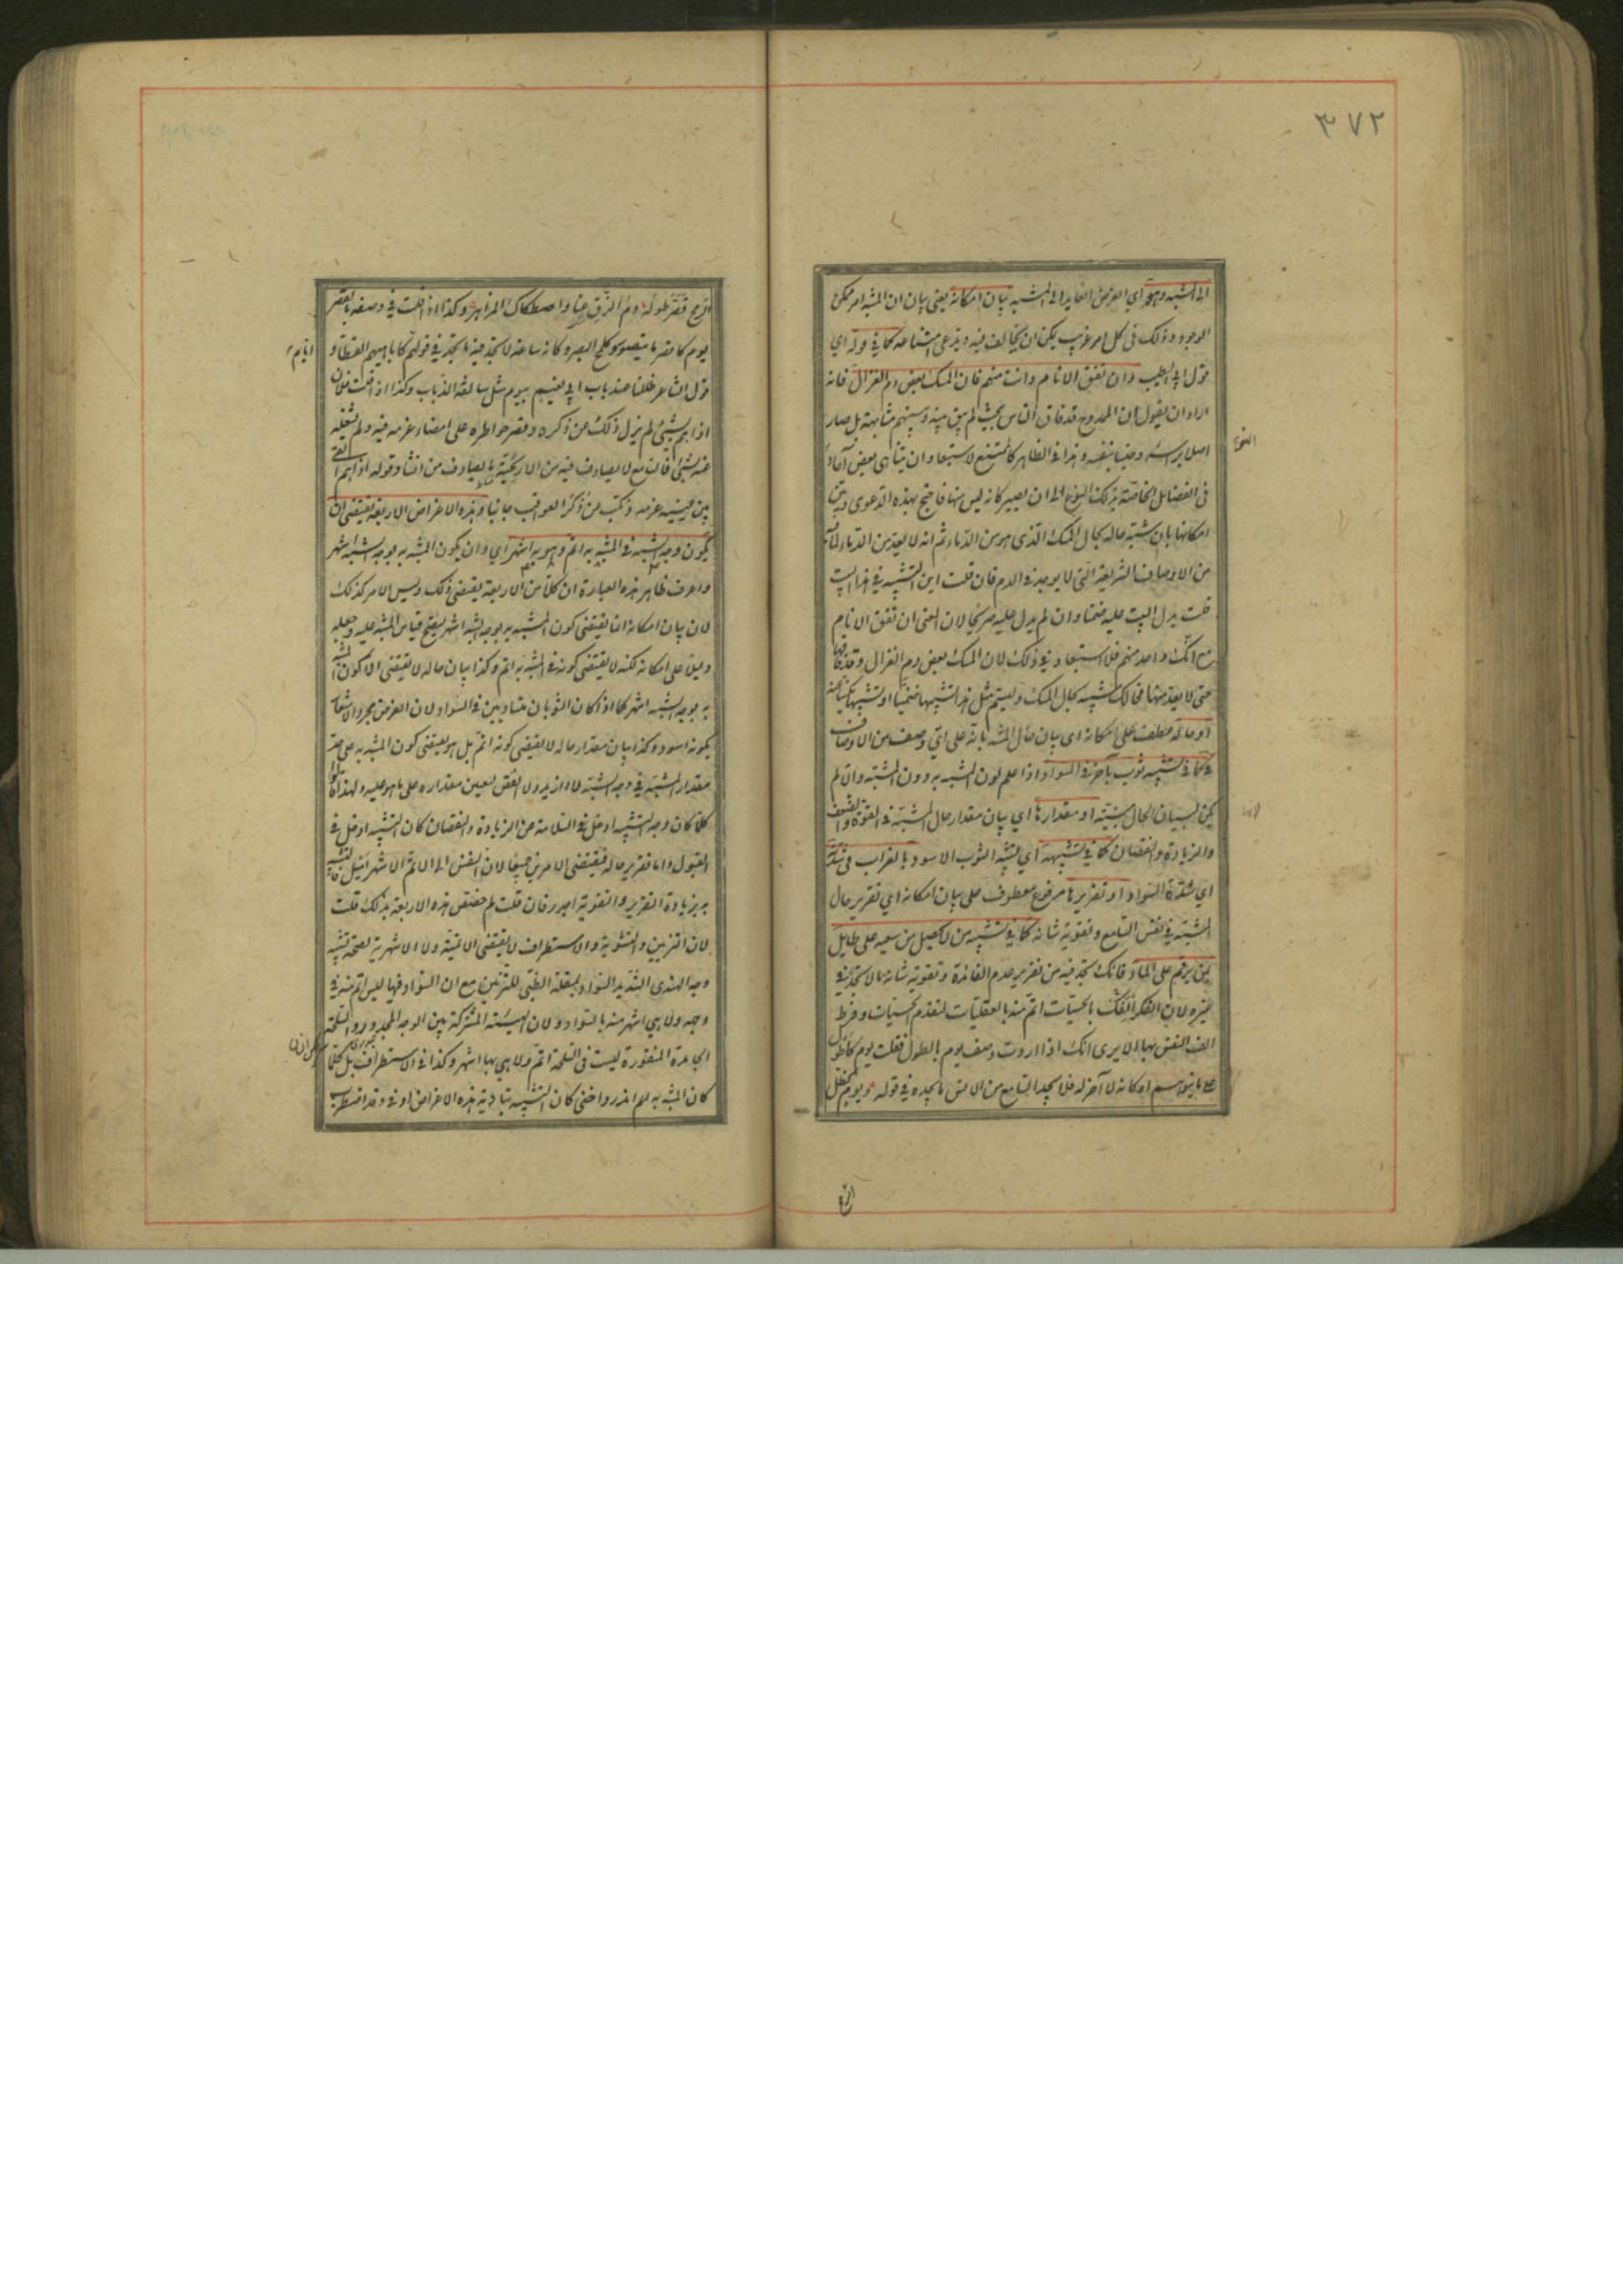 ٣٧٢
الى المشبه وهو اي الغرض العايد الى المشبه بيان امكانه يعني بيان ان المشبه امر ممكن
الوجود وذلك في كل امر غريب يمكن ان يخالف فيه ويدعى امتناعه كما في قوله اي
قول ابي الطيب وان تفق الانام وانت منهم فان المسك بعض دم الغزال فانه
اراد ان يقول ان الممدوح قد فاق الناس بحيث لم يبق بينه وبينهم مشابهة بل صار
اصلا برأسه وجنسا بنفسه وهذا في الظاهر كالممتنع لاستبعاد ان يتناهى بعض آحاد
النوع
في الفضائل الخاصة بذلك النوع الى ان يصير كانه ليس منها فاحتج لهذه الدعوى وبين
امكانها بان شبه حاله بحال المسك الذي هو من الدماء ثم انه لا يعد من الدماء لما فيه
من الاوصاف الشريفة التي لا يوجد في الدم فان قلت اين التشبيه في هذا البيت
قلت يدل البيت عليه ضمنا وان لم يدل عليه صريحا لان المعنى ان تفق الانام
مع انك واحد منهم فلا استبعاد في ذلك لان المسك بعض دم الغزال وقد فاقها
حتى لا يعد منها فحالك شبيه بحال المسك وليسم مثل هذا تشبيها ضمنيا او تشبيها مكنيا عنه
او حاله عطف على امكانه اى بيان حال المشبه بانه على اي وصف من الاوصاف
كما في تشبيه ثوب بآخر في السواد اذا علم لون المشبه به دون المشبه والا لم
يكن لبيان الحال مبينة او مقدارها اي بيان مقدار حال المشبه في القوة والضعف
والزيادة والنقصان كما في تشبيهه اي تشبيه الثوب الاسود بالغراب في شدته
اي شدة السواد او تقريرها مرفوع معطوف على بيان امكانه اي تقرير حال
المشبه في نفس السامع وتقوية شانه كما في تشبيه من لا يحصل من سعيه على طايل
بمن يرقم على الماء فانك تجد فيه من تقرير عدم الفائدة وتقوية شانه ما لا تجده في
غيره لان الفكر بالحسيات اتم منه بالعقليات لتقدم الحسيات وفرط
الف النفس بها الا يرى انك اذا اردت وصف يوم بالطول فقلت يوم كاطول
ما يتوهم او كانه لا آخر له فلا يجد السامع من الانس ما يجده في قوله ويوم كظل
الرمح
الرمح قصر طوله دم الزق عنا واصطكاك المزاهر وكذا اذا قلت في وصفه بالقصر
يوم كاقصر ما يتصور وكلمح البصر وكانه ساعة لا تجد فيه ما تجد في قولهم كاباهيم القطا و
ايام
قول الشاعر ظللنا عند باب ابي نعيم بيوم مثل سالفة الذباب وكذا اذا قلت فلان
اذا هم بشيئ لم يزل ذلك عن ذكره وقصر خواطره على امضاء عزمه فيه ولم يشغله
عنه شيئ فالسامع لا يصادف فيه من الاريحية ما يصادف من انشاد قوله اذا هم القى
بين عينيه عزمه ونكب عن ذكر العواقب جانبا وهذه الاغراض الاربعة تقتضي ان
يكون وجه الشبه في المشبه به اتم وهو به اشهر اي وان يكون المشبه به بوجه الشبه اشهر
واعرف ظاهر هذه العبارة ان كلا من الاربعة يقتضي ذلك وليس الامر كذلك
لان بيان امكانه انما يقتضي كون المشبه به بوجه الشبه اشهر ليصح قياس المشبه عليه وجعله
دليلا على امكانه لكنه لا يقتضي كونه في المشبه به اتم وكذا بيان حاله لا يقتضي الا كون المشبه
به بوجه الشبه اشهر كما اذا كان الثوبان متساويين في السواد لان الغرض مجرد الاشعار
بكونه اسود وكذا بيان مقدار حاله لا يقتضي كونه اتم بل هو يقتضي كون المشبه به على حد
مقدار المشبه في وجه الشبه لا ازيد ولا انقص ليعين مقداره على ما هو عليه ولهذا قالوا
كلما كان وجه التشبيه ادخل في السلامة عن الزيادة والنقصان كان التشبيه ادخل في
القبول واما تقرير حاله فيقتضي الامرين جميعا لان النفس الى الاتم الاشهر اميل فالتشبيه
به بزيادة التقرير والتقوية اجدر فان قلت لم خصص هذه الاربعة بذلك قلت
لان التزيين والتشويه والاستطراف لا يقتضي الاتمية ولا الاشهرية لصحة تشبيه
وجه الهندي الشديد السواد بمقلة الظبي للتزيين مع ان السواد فيها ليس اتم منه في
وجهه ولا هي اشهر منه بالسواد ولان الهيئة المشتركة بين الوجه المجدور والسلحة
الجامدة المنقورة ليست في السلحة اتم ولا هي بها اشهر وكذا في الاستطراف بل كلما
كان المشبه به اندر واخفى كان التشبيه بتادية هذه الاغراض اوفى وقد اضطرب